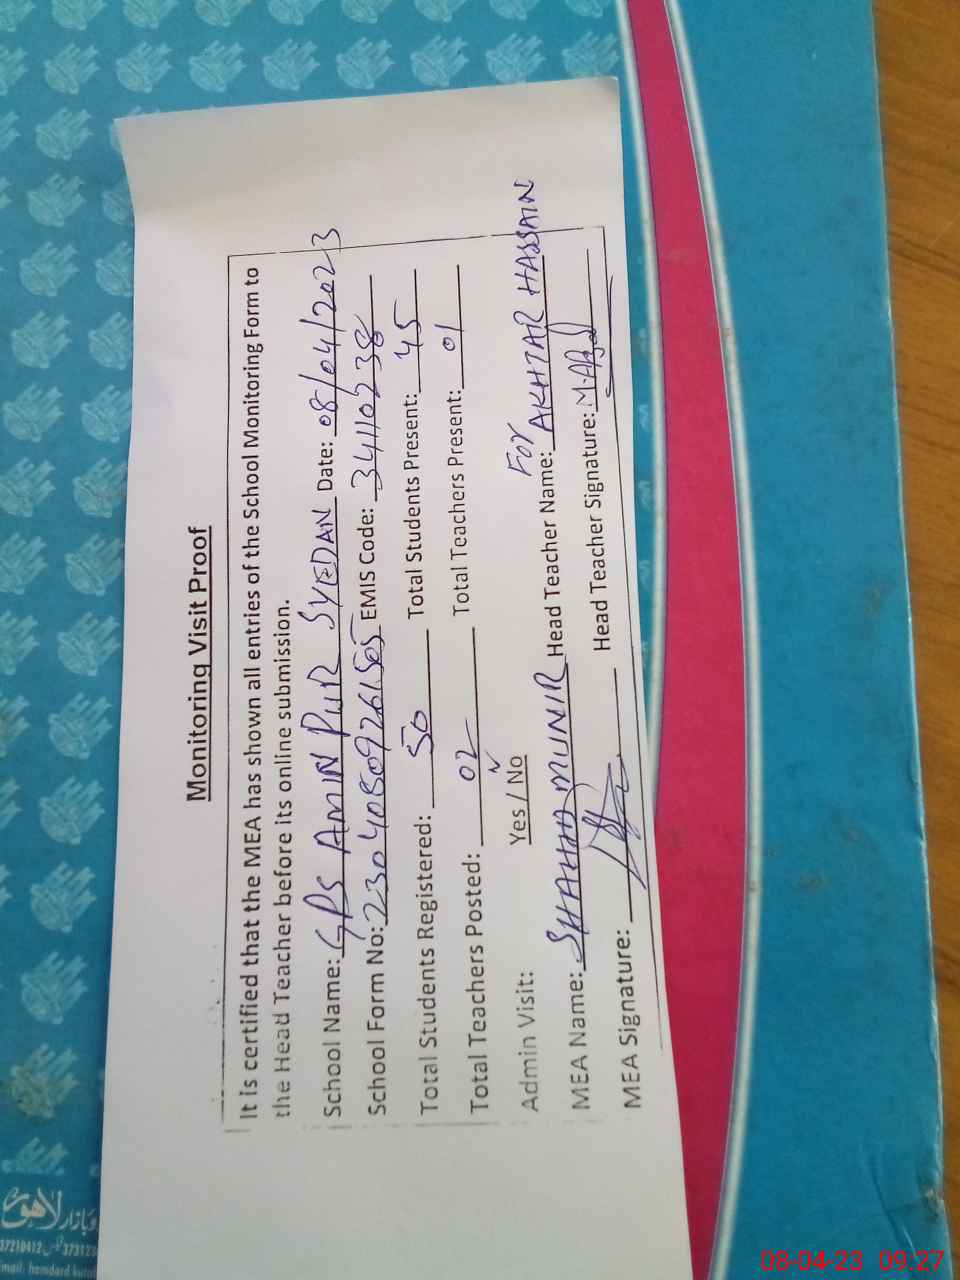 Monitoring Visit Proof
It is certified that the MEA has shown all entries of the School Monitoring Form to
the Head Teacher before its online submission.
School Name: GPS AMIN PUR SYEDAN Date: 08/04/2023
School Form No: 23040809261505 EMIS Code: 34110238
Total Students Registered: 50 Total Students Present: 45
Total Teachers Posted: 02 Total Teachers Present: 01
Admin Visit: Yes / No
For
MEA Name: SHAHID MUNIR Head Teacher Name: AKHTAR HASSAIN
MEA Signature: Head Teacher Signature: M.Afzal
بازار لاہور
37210412
mail: hamdard
08-04-23 09:27